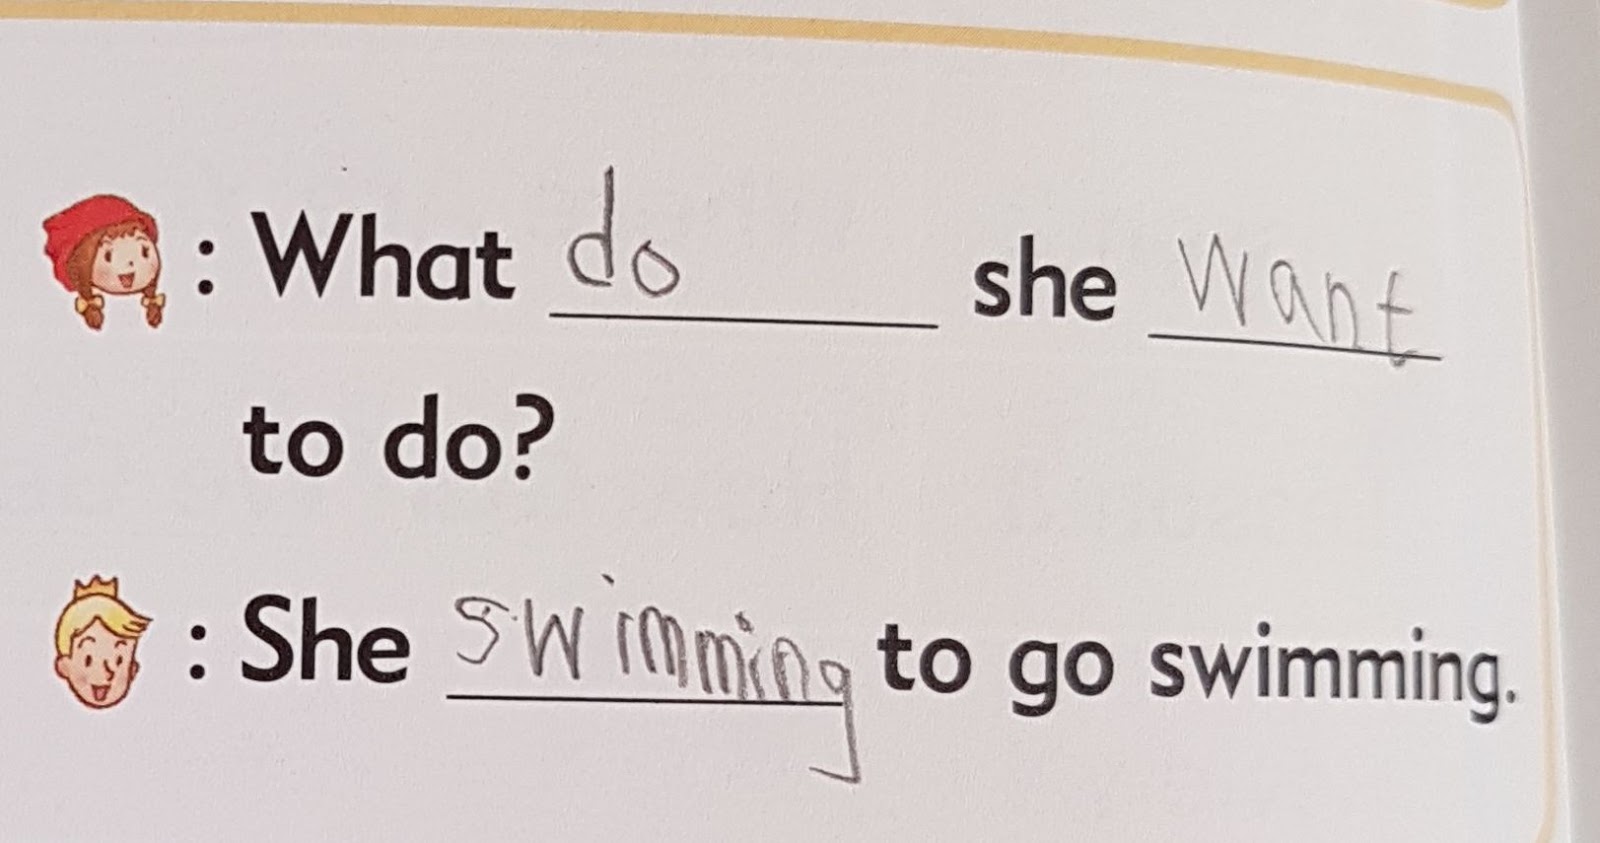 : What do she want
to do?
: She swimming to go swimming.